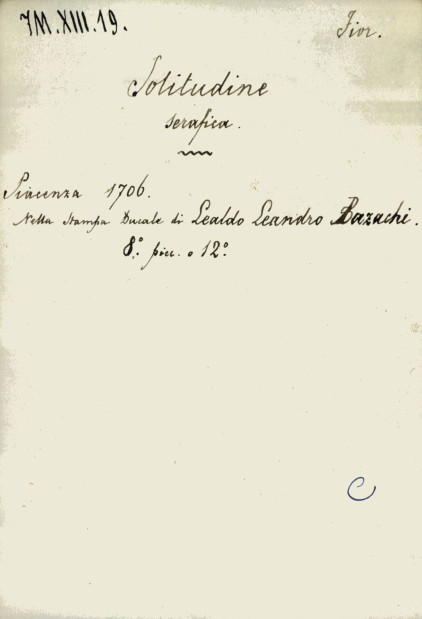 7M.XIII.19.
Fior.
Solitudine
serafica.
Piacenza 1706.
Nella Stampa Ducale di Lealdo Leandro Bazachi.
8.° picc. o 12.°
C